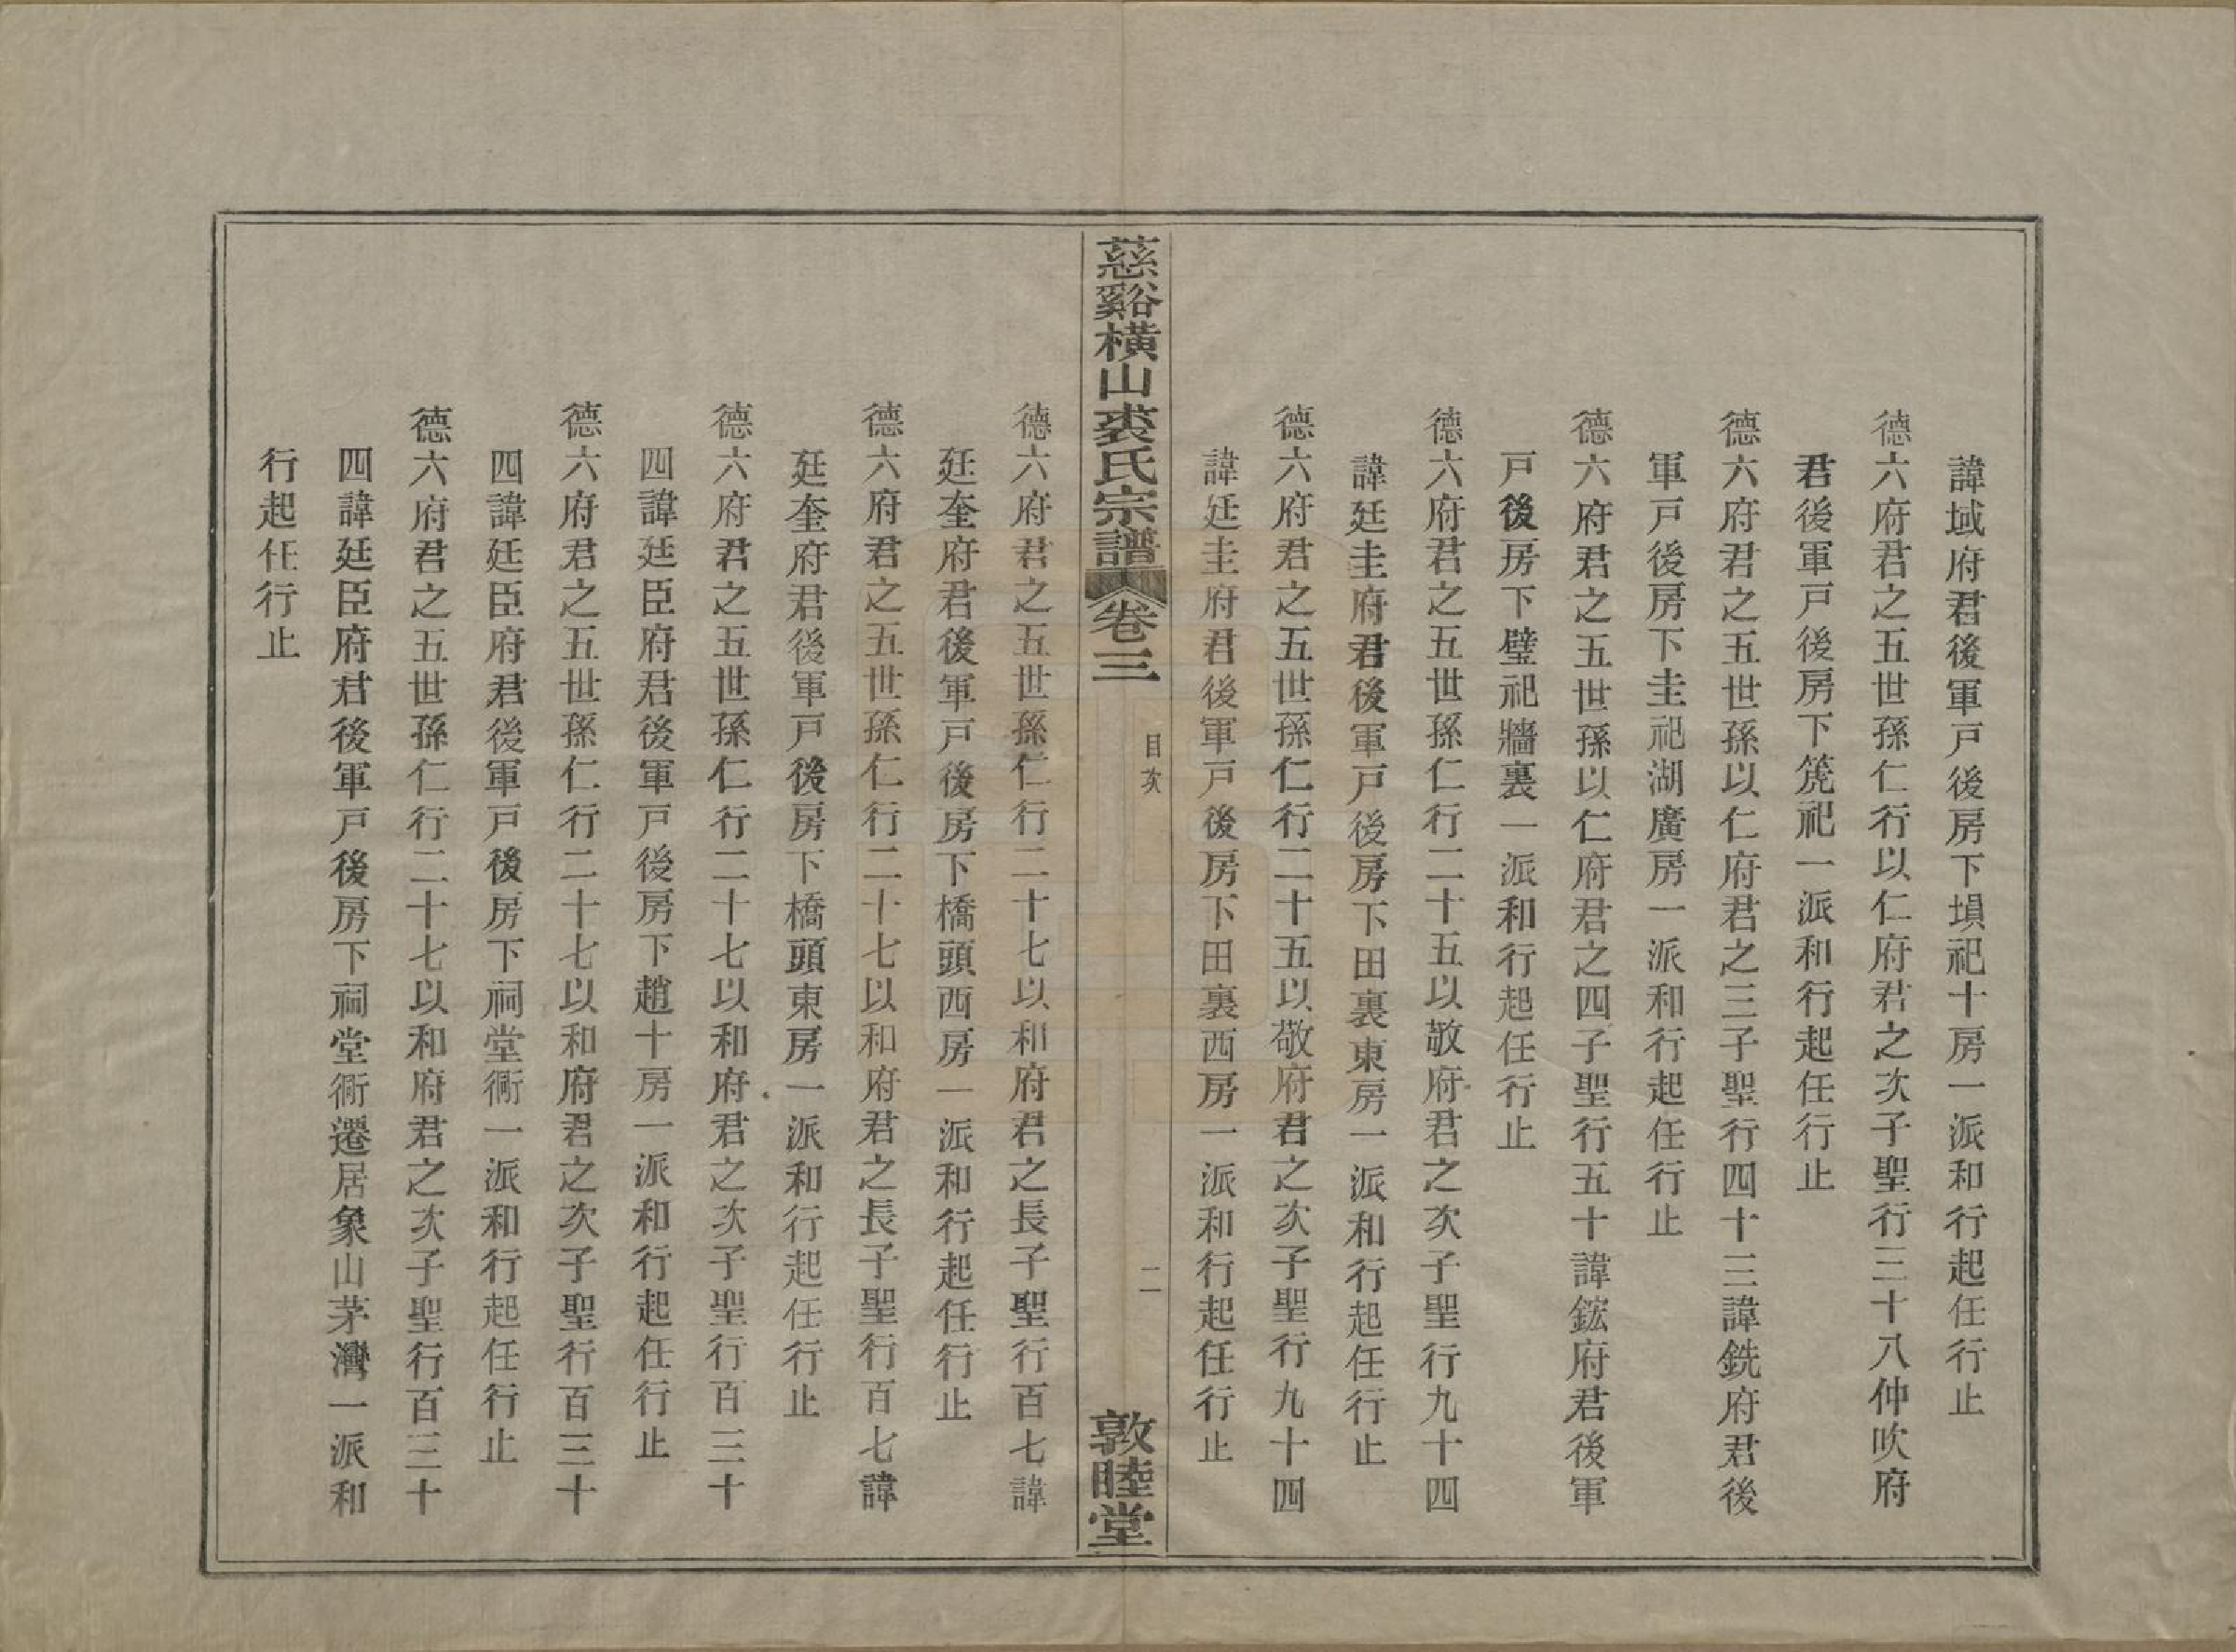 諱域府君後軍戸後房下塤祀十房一派和行起任行止
德六府君之五世孫仁行以仁府君之次子聖行三十八仲吹府
君後軍戸後房下箎祀一派和行起任行止
德六府君之五世孫以仁府君之三子聖行四十三諱銑府君後
軍戸後房下圭祀湖廣房一派和行起任行止
德六府君之五世孫以仁府君之四子聖行五十諱鋐府君後軍
戸後房下璧祀牆裏一派和行起任行止
德六府君之五世孫仁行二十五以敬府君之次子聖行九十四
諱廷圭府君後軍戸後房下田裏東房一派和行起任行止
德六府君之五世孫仁行二十五以敬府君之次子聖行九十四
諱廷圭府君後軍戸後房下田裏西房一派和行起任行止
慈谿橫山裘氏宗譜 卷三 目次 二 敦睦堂
德六府君之五世孫仁行二十七以和府君之長子聖行百七諱
廷奎府君後軍戸後房下橋頭西房一派和行起任行止
德六府君之五世孫仁行二十七以和府君之長子聖行百七諱
廷奎府君後軍戸後房下橋頭東房一派和行起任行止
德六府君之五世孫仁行二十七以和府君之次子聖行百三十
四諱廷臣府君後軍戸後房下趙十房一派和行起任行止
德六府君之五世孫仁行二十七以和府君之次子聖行百三十
四諱廷臣府君後軍戸後房下祠堂衕一派和行起任行止
德六府君之五世孫仁行二十七以和府君之次子聖行百三十
四諱廷臣府君後軍戸後房下祠堂衕遷居象山茅灣一派和
行起任行止